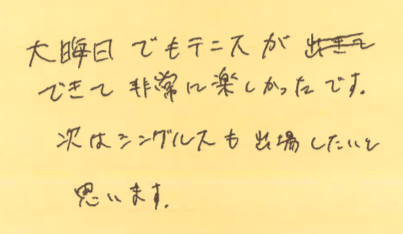 大晦日でもテニスが
できて非常に楽しかったです。
次はシングルスも出場したいと
思います。